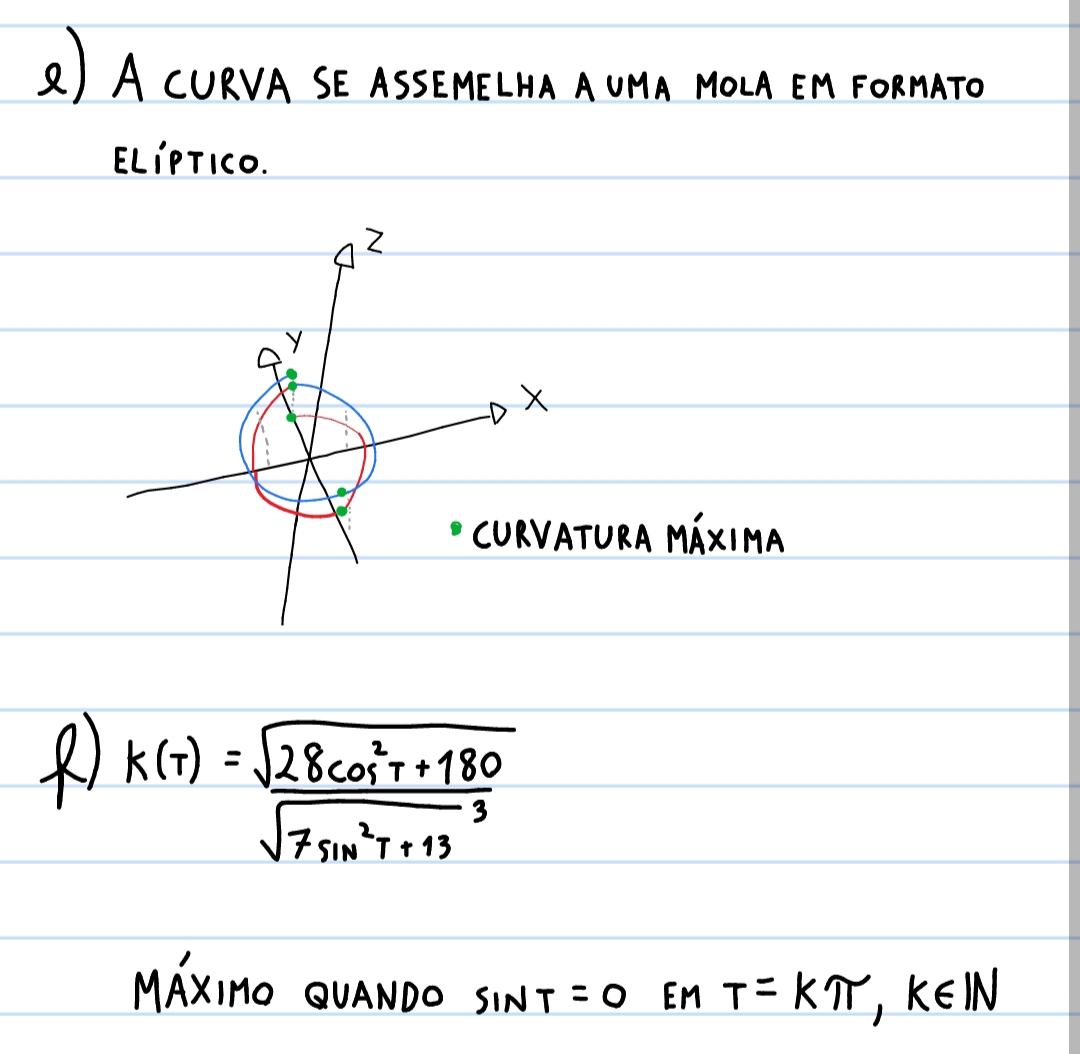 e) A CURVA SE ASSEMELHA A UMA MOLA EM FORMATO
ELÍPTICO.
Z
Y
X
• CURVATURA MÁXIMA
f) K(T) = √(28cos²T + 180) / √(7 SIN²T + 13)³
MÁXIMO QUANDO SIN T = 0 EM T = Kπ, K∈ℕ